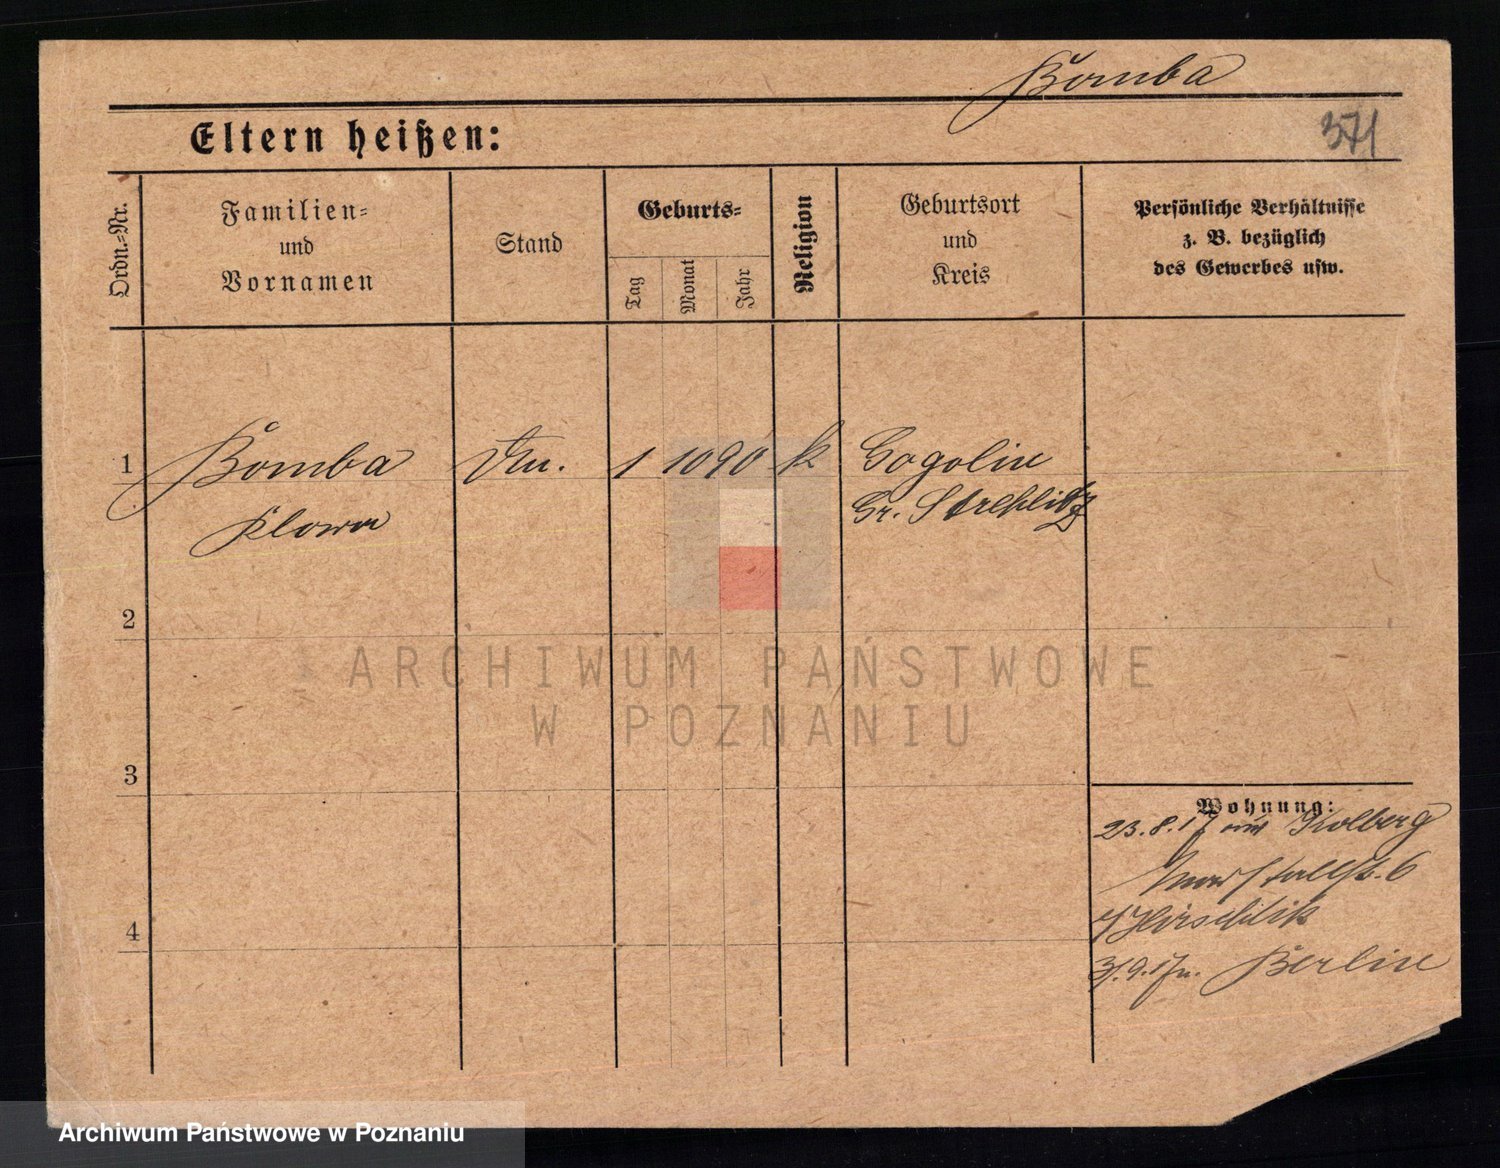 Bomba
371
Eltern heißen:
Ordn.-Nr.
Familien-
und
Vornamen
Stand
Geburts-
Tag
Monat
Jahr
Religion
Geburtsort
und
Kreis
Persönliche Verhältnisse
z. B. bezüglich
des Gewerbes usw.
1 Bomba 1 10 90 k Gogolin
Gr. Strehlitz
2
ARCHIWUM PAŃSTWOWE
W POZNANIU
3
Wohnung:
23.8.17 aus Kolberg
4
31.9.17 n. Berlin
Archiwum Państwowe w Poznaniu